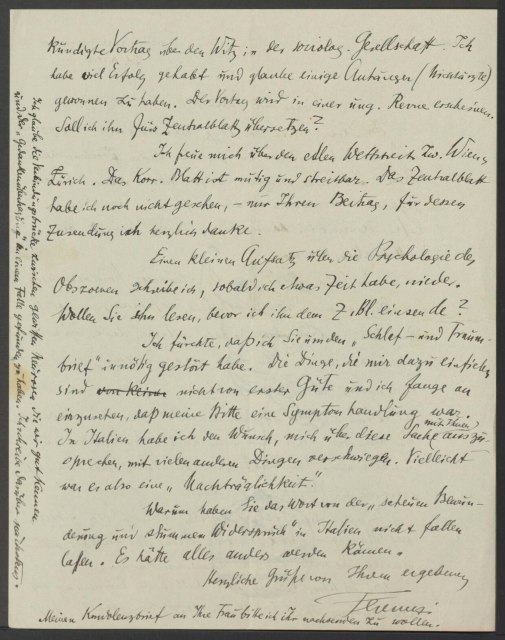 kündigte Vortrag über den Witz in der soziolog. Gesellschaft. Ich
habe viel Erfolg gehabt und glaube einige Anhänger (Nichtärzte)
gewonnen zu haben. Der Vortrag wird in einer ung. Revue erscheinen.
Soll ich ihn fürs Zentralblatt übersetzen?
Ich freue mich über den edlen Wettstreit zw. Wien u
Zürich. Das Korr. Blatt ist mutig und streitbar. Das Zentralblatt
habe ich noch nicht gesehen, – nur Ihren Beitrag, für dessen
Zusendung ich herzlich danke.
Einen kleinen Aufsatz über die Psychologie des
Obszoenen schreibe ich, sobald ich etwas Zeit habe, nieder.
Wollen Sie ihn lesen, bevor ich ihn dem Z. Bl. einsende?
Ich fürchte, daß ich Sie um den „Schlaf – und Traum-
brief" unnötig gestört habe. Die Dinge, die mir dazu einfielen,
sind nicht von erster Güte und ich fange an
einzusehen, daß meine Bitte eine Symptomhandlung war.
In Italien habe ich den Wunsch, mich mit Ihnen über diese Sache auszu-
sprechen, mit vielen anderen Dingen verschwiegen. Vielleicht
war es also eine „Nachträglichkeit".
Warum haben Sie das Wort von der „scheuen Bewun-
derung und stummen Widerspruch" in Italien nicht fallen
lassen. Es hätte alles anders werden können.
Herzliche Grüße von Ihrem ergebenen
Ferenczi
Meinen Kondolenzbrief an Ihre Frau bitte ich ihr nachsenden zu wollen.
Ich glaube die Verbindungsbrücke zwischen gewissen Neurosen, die wir gut kennen
und der „Gedankenübertragung" in einem Falle gefunden zu haben. Ich schreibe darüber nächstens.